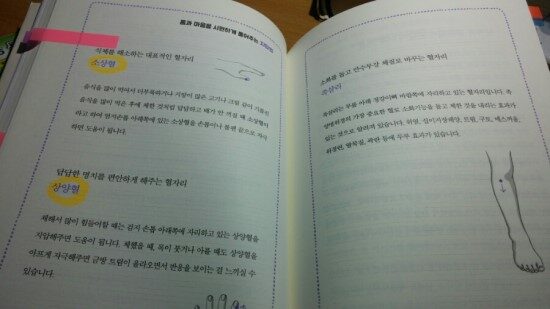 몸과 마음을 시원하게 풀어주는
식체를 해소하는 대표적인 혈자리
소상혈
음식을 많이 먹어서 더부룩하거나 지방이 많은 고기나 크림 같이 기름진
음식을 많이 먹은 후에 체한 것처럼 답답하고 배가 안 꺼질 때 소상혈이
라고 하여 엄지손톱 아래쪽에 있는 소상혈을 손톱이나 볼펜 끝으로 자극
하면 도움이 됩니다.
답답한 명치를 편안하게 해주는 혈자리
상양혈
체해서 많이 힘들어할 때는 검지 손톱 아래쪽에 자리하고 있는 상양혈을
지압해주면 도움이 됩니다. 체했을 때, 목이 붓거나 아플 때도 상양혈을
아프게 자극해주면 금방 트림이 올라오면서 반응을 보이는 걸 느끼실 수
있습니다.
소화를 돕고 만수무강 체질로 바꾸는 혈자리
족삼리
족삼리는 무릎 아래 정강이뼈 바깥쪽에 자리하고 있는 혈자리입니다. 족
양명위경의 가장 중요한 혈로 소화기능을 돕고 체한 것을 내리는 효과가
있는 것으로 알려져 있습니다. 위염, 십이지장궤양, 트림, 구토, 메스꺼움,
위경련, 명복통, 곽란 등에 두루 효과가 있습니다.